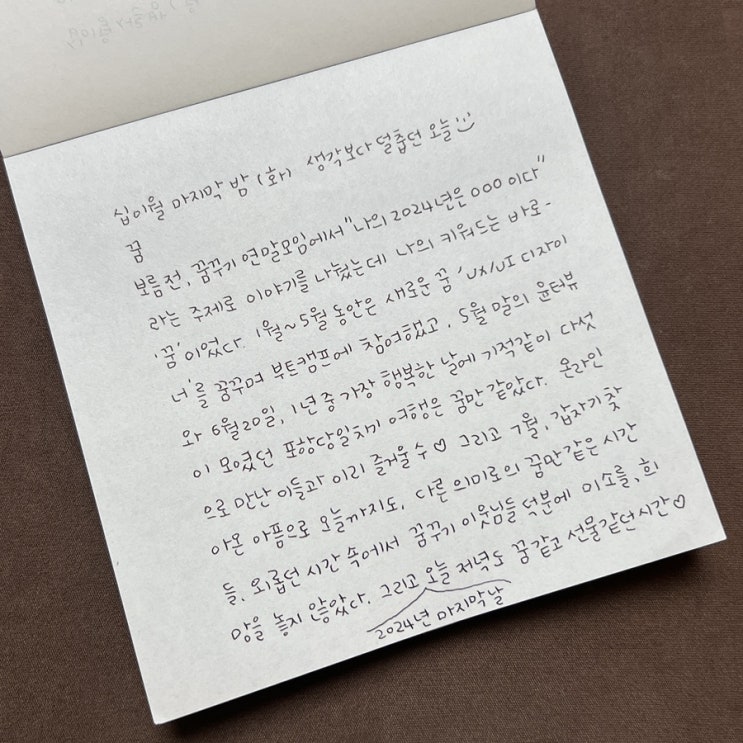 십이월 마지막 밤 (화) 생각보다 덜춥던 오늘
꿈
보름 전, 꿈꾸기 연말모임에서 "나의 2024년은 000 이다"
라는 주제로 이야기를 나눴는데 나의 키워드는 바로-
'꿈'이었다. 1월~5월 동안은 새로운 꿈 'UX/UI 디자이
너'를 꿈꾸며 부트캠프에 참여했고, 5월 말의 윤터뷰
와 6월20일, 1년 중 가장 행복한 날에 기적같이 다섯
이 모였던 포항당일치기 여행은 꿈만 같았다. 온라인
으로 만난 이들과 이리 즐거울 수♡ 그리고 7월, 갑자기 찾
아온 아픔으로 오늘까지도, 다른 의미로의 꿈만 같은 시간
들. 외롭던 시간 속에서 꿈꾸기 이웃님들 덕분에 미소를, 희
망을 놓지 않았다. 그리고 오늘 저녁도 꿈같고 선물같던시간♡
2024년 마지막날